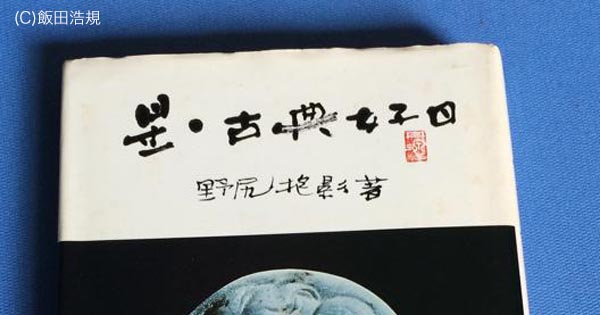 (C)飯田浩規
星・古典好日
野尻抱影著